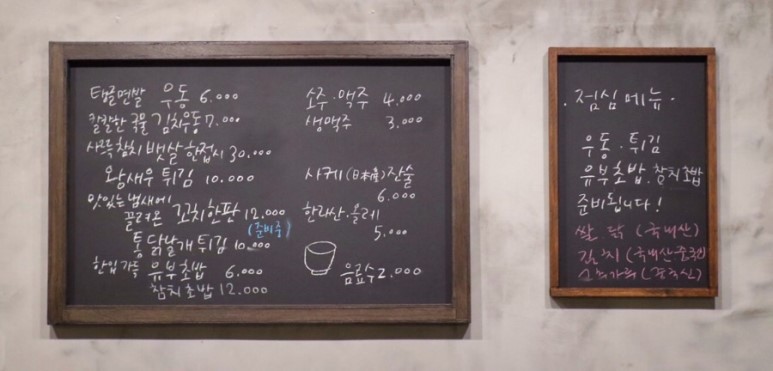 탱글면발 우동 6.000
칼칼한 국물 김치우동 7.000
사르륵 참치 뱃살 한접시 30.000
왕새우 튀김 10.000
맛있는 냄새에
끌려온 꼬치한판 12.000
(준비중)
통닭날개튀김 10.000
한입가득 유부초밥 6.000
참치초밥 12.000
소주·맥주 4.000
생맥주 3.000
사케(日本産)잔술
6.000
한라산·올레
5.000
음료수 2.000
·점심메뉴·
우동·튀김
유부초밥·참치초밥
준비됩니다!
쌀 닭 (국내산)
김치(국내산·중국산)
(중국산)